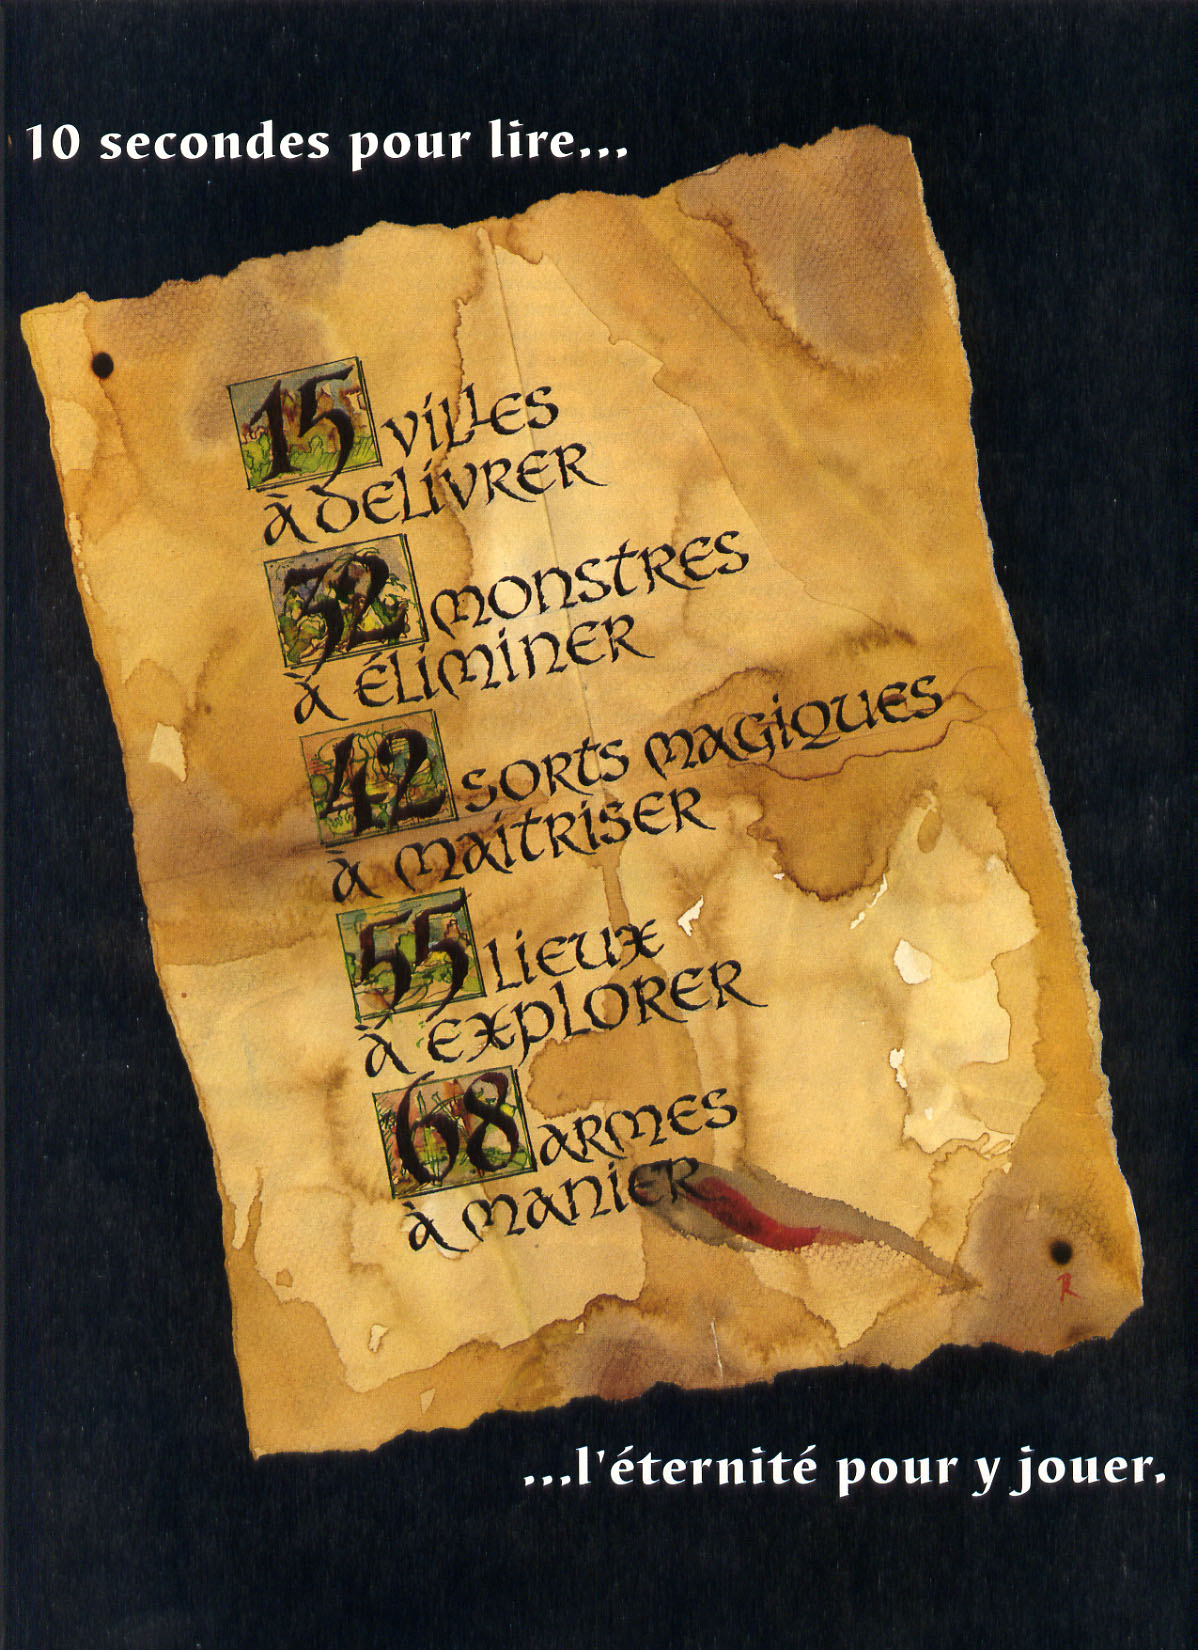 10 secondes pour lire...
15 villes
à delivrer
32 monstres
à éliminer
42 sorts magiques
à maitriser
55 lieux
à explorer
68 armes
à manier
R
...l'éternité pour y jouer.